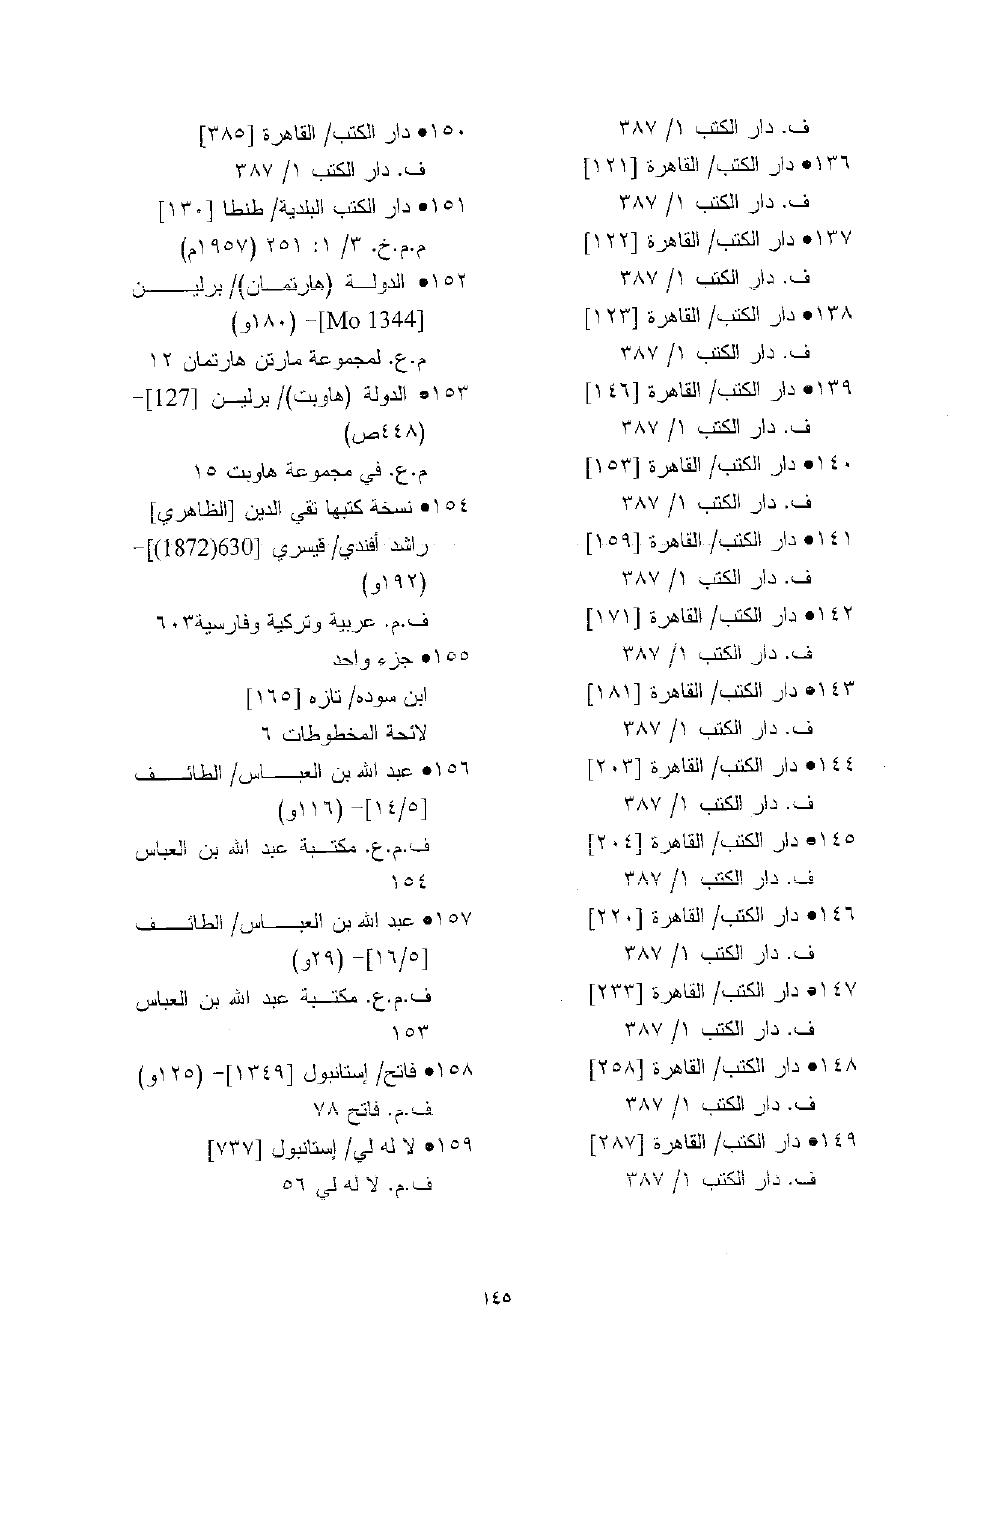 ف. دار الكتب ١/ ٣٨٧
١٣٦• دار الكتب/ القاهرة [١٢١]
ف. دار الكتب ١/ ٣٨٧
١٣٧• دار الكتب/ القاهرة [١٢٢]
ف. دار الكتب ١/ ٣٨٧
١٣٨• دار الكتب/ القاهرة [١٢٣]
ف. دار الكتب ١/ ٣٨٧
١٣٩• دار الكتب/ القاهرة [١٤٦]
ف. دار الكتب ١/ ٣٨٧
١٤٠• دار الكتب/ القاهرة [١٥٣]
ف. دار الكتب ١/ ٣٨٧
١٤١• دار الكتب/ القاهرة [١٥٩]
ف. دار الكتب ١/ ٣٨٧
١٤٢• دار الكتب/ القاهرة [١٧١]
ف. دار الكتب ١/ ٣٨٧
١٤٣• دار الكتب/ القاهرة [١٨١]
ف. دار الكتب ١/ ٣٨٧
١٤٤• دار الكتب/ القاهرة [٢٠٣]
ف. دار الكتب ١/ ٣٨٧
١٤٥• دار الكتب/ القاهرة [٢٠٤]
ف. دار الكتب ١/ ٣٨٧
١٤٦• دار الكتب/ القاهرة [٢٢٠]
ف. دار الكتب ١/ ٣٨٧
١٤٧• دار الكتب/ القاهرة [٢٣٣]
ف. دار الكتب ١/ ٣٨٧
١٤٨• دار الكتب/ القاهرة [٢٥٨]
ف. دار الكتب ١/ ٣٨٧
١٤٩• دار الكتب/ القاهرة [٢٨٧]
ف. دار الكتب ١/ ٣٨٧
١٥٠• دار الكتب/ القاهرة [٣٨٥]
ف. دار الكتب ١/ ٣٨٧
١٥١• دار الكتب البلدية/ طنطا [١٣٠]
م.م.خ. ٣/ ١: ٢٥١ (١٩٥٧م)
١٥٢• الدولة (هارتمان)/ برلين
[Mo 1344]– (١٨٠و)
م.ع. لمجموعة مارتن هارتمان ١٢
١٥٣• الدولة (هاوبت)/ برلين [127]–
(٤٤٨ص)
م.ع. في مجموعة هاوبت ١٥
١٥٤• نسخة كتبها تقي الدين [الظاهري]
راشد أفندي/ قيسري [630(1872)]–
(١٩٢و)
ف.م. عربية وتركية وفارسية٦٠٣
١٥٥• جزء واحد
ابن سوده/ تازه [١٦٥]
لائحة المخطوطات ٦
١٥٦• عبد الله بن العباس/ الطائف
[١٤/٥]– (١١٦و)
ف.م.ع. مكتبة عبد الله بن العباس
١٥٤
١٥٧• عبد الله بن العباس/ الطائف
[١٦/٥]– (٢٩و)
ف.م.ع. مكتبة عبد الله بن العباس
١٥٣
١٥٨• فاتح/ إستانبول [١٣٤٩]– (١٢٥و)
ف.م. فاتح ٧٨
١٥٩• لا له لي/ إستانبول [٧٣٧]
ف.م. لا له لي ٥٦
١٤٥